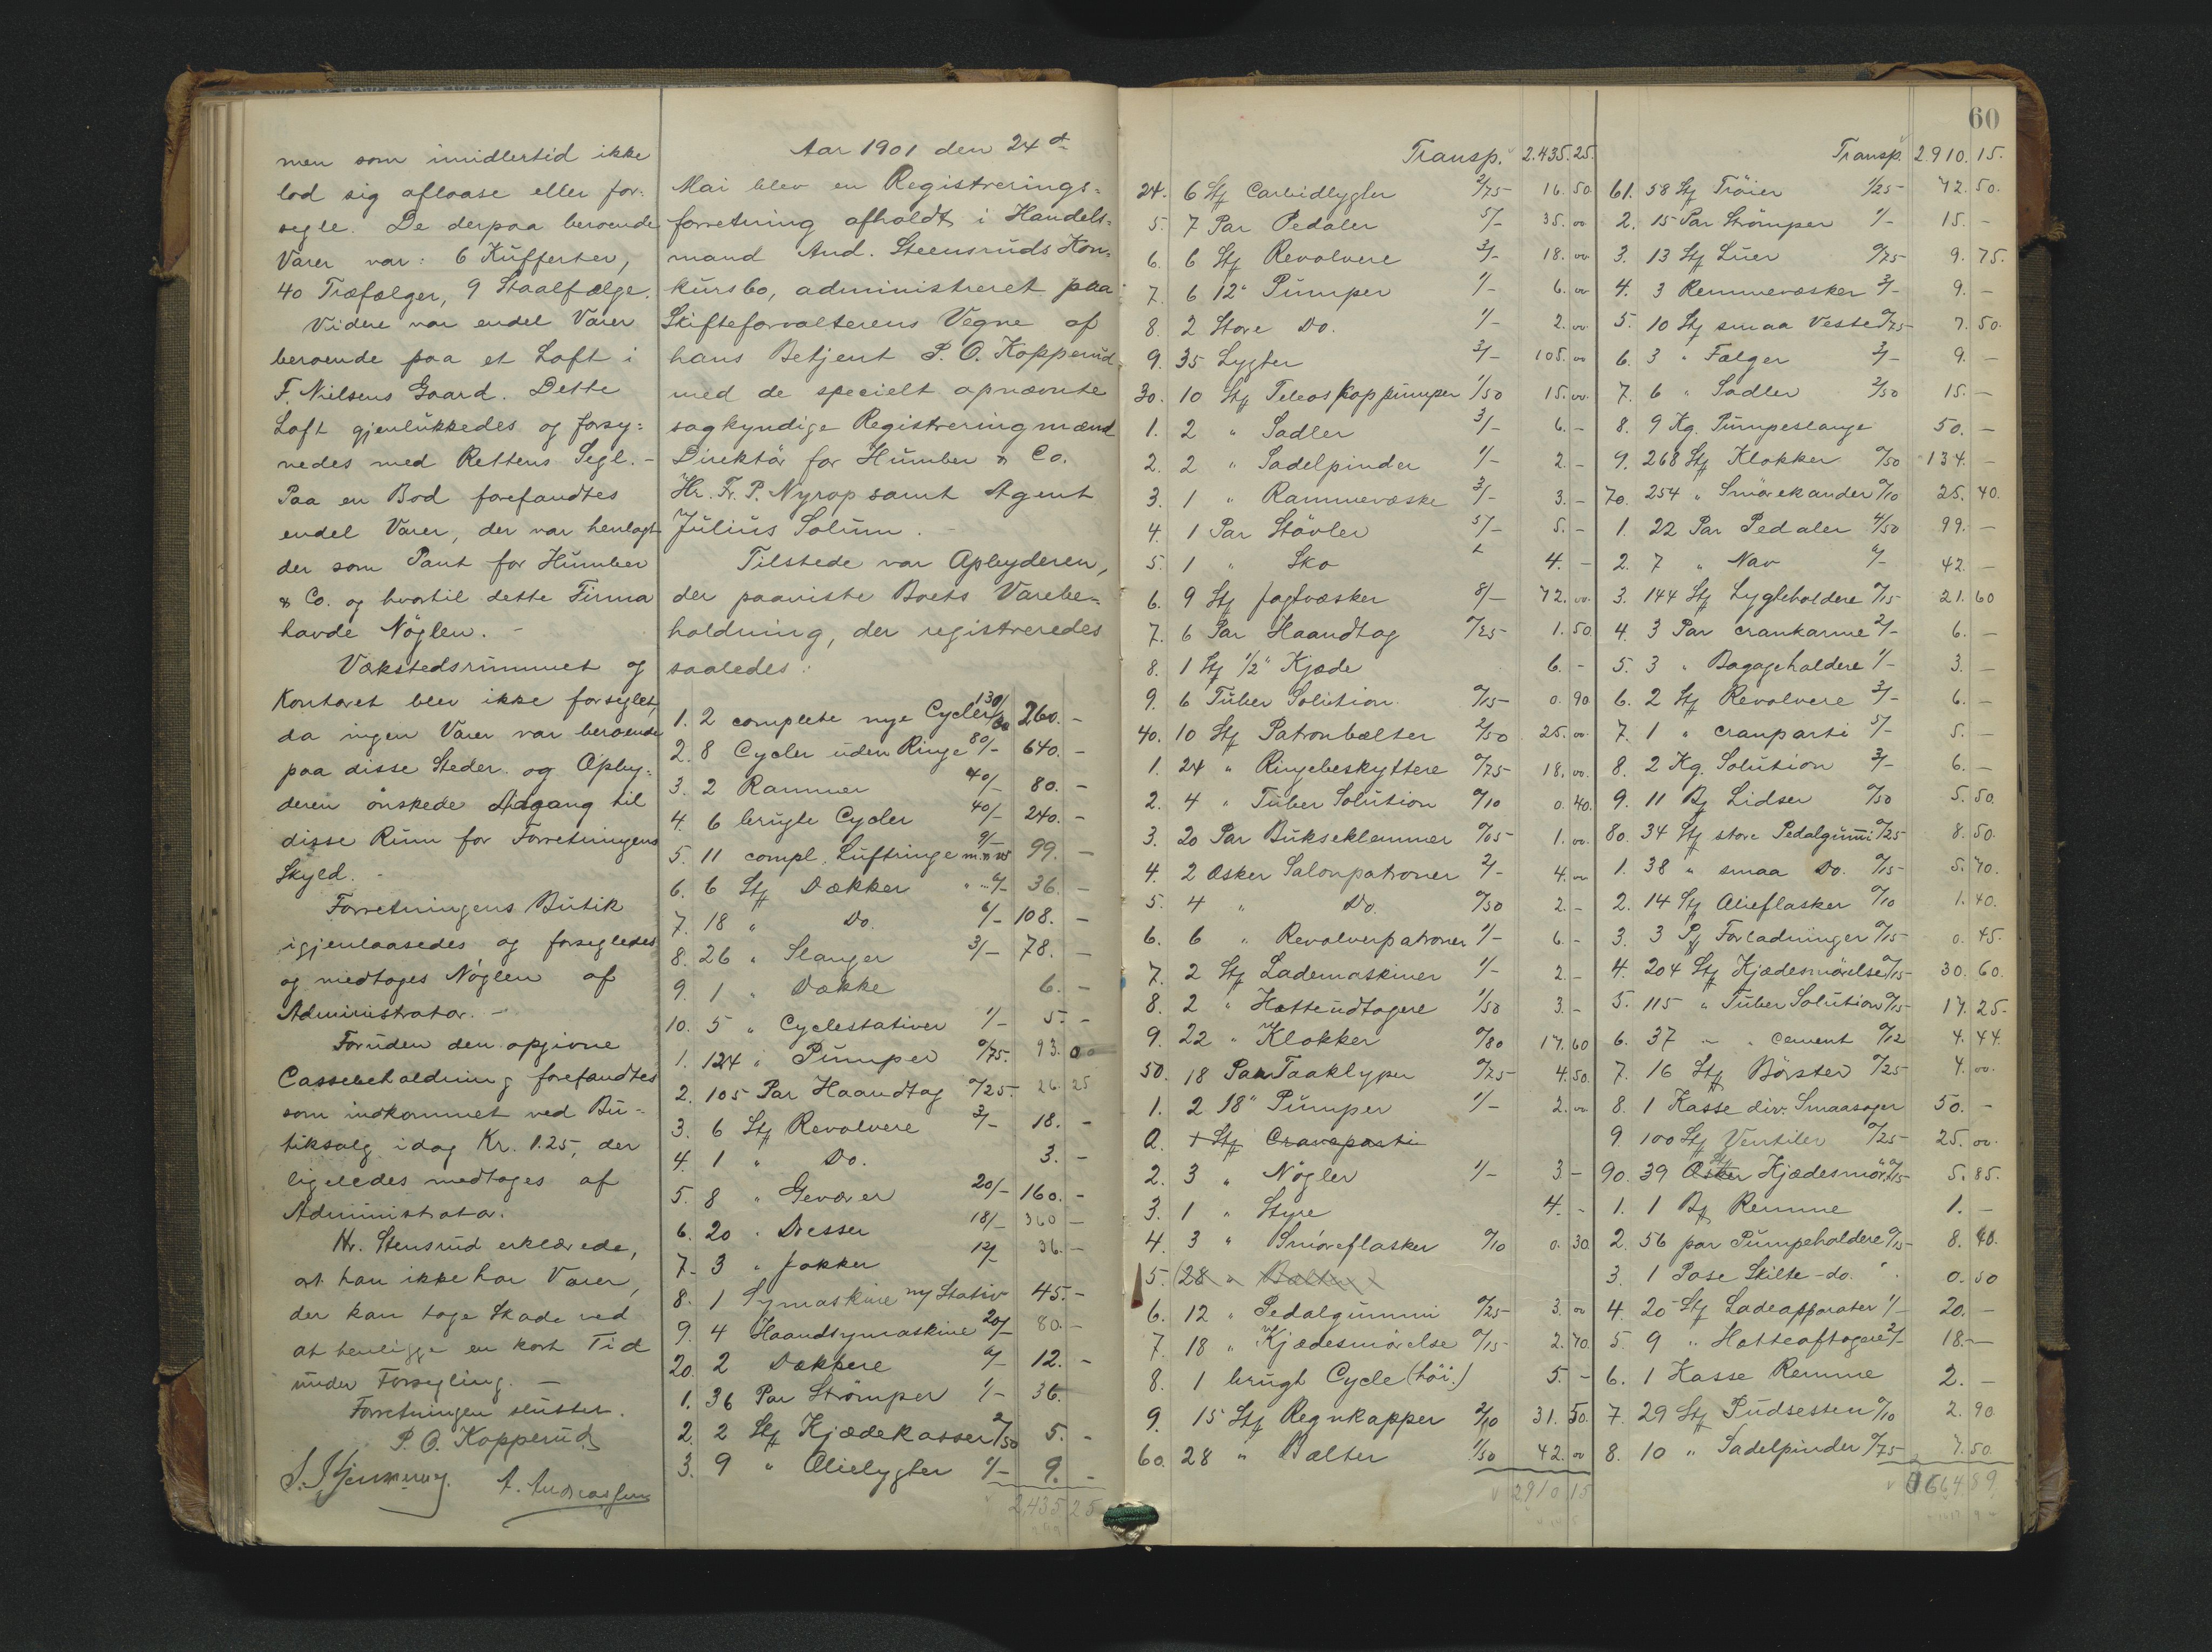 men som imidlertid ikke
lod sig aflaase eller for-
segle. De derpaa beroende
Varer var: 6 Kufferter,
40 Træfælger, 9 Staalfælge.
Videre var endel Varer
beroende paa et Loft i
F. Nielsens Gaard. Dette
Loft gjenlukkedes og forsy=
nedes med Rettens Segl. -
Paa en Bod forefandtes
endel Varer, der var henlagt
der som Pant for Humber
& Co. og hvortil dette Firma
havde Nøglen. -
Vækstedsrummet og
Kontoret blev ikke forseglet,
da ingen Varer var beroende
paa disse Steder og Opby=
deren ønskede Adgang til
disse Rum for Forretningens
Skyld. -
Forretningens Butik
igjenlaasedes og forsegledes
og medtoges Nøglen af
Administrator. -
Foruden den opgivne
Cassebeholdning forefandtes
som indkommet ved Bu-
tiksalg idag Kr. 1.25, der
ligeledes medtoges af
Administrator.
Hr. Stensrud erklærede,
at han ikke har Varer,
der kan tage Skade ved
at henligge en kort Tid
under Forsegling. -
Forretningen sluttet.
P. O. Kopperud
A. Andreassen
Aar 1901 den 24 d
Mai blev en Registrerings=
forretning afholdt i Handels=
mand And. Steensruds Kon=
kursbo, administreret paa
Skifteforvalterens Vegne af
hans Betjent P. O. Kopperud
med de specielt opnævnte
sagkyndige Registreringmænd
Direktør for Humber & Co.
Hr. Fr. P. Nyrop samt Agent
Julius Solum. -
Tilstede var Opbyderen,
der paaviste Boets Varebe=
holdning, der registreredes
saaledes:
1. 2 complete nye Cycler 130/00 260. -
2. 8 Cycler uden Ringe 80/- 640. -
3. 2 Rammer 40/- 80. -
4. 6 brugte Cycler 40/- 240. -
5. 11 compl. Luftringe 9/- 99. -
6. 6 Stk Dækker 6/- 36. -
7. 18 " Do. 6/- 108. -
8. 26 " Slanger 3/- 78. -
9. 1 " Dække 6. -
10. 5 " Cyclestativer 1/- 5. -
1. 124 " Pumper 0/75. 93. 00
2. 105 Par Haandtag 0/25. 26. 25
3. 6 Stk Revolvere 3/- 18. -
4. 1 " Do. 3. -
5. 8 " Geværer 20/- 160. -
6. 20 " Dresser 18/- 360 -
7. 3 " Jakker 12/- 36. -
8. 1 Symaskine ny Stativ 45. -
9. 4 Haandsymaskine 20/- 80. -
20. 2 Dækkere 6/- 12. -
1. 36 Par Strømper 1/- 36.
2. 2 Stk Kjædekasser 2/50 5. -
3. 9 " Olielygter 1/- 9. -
2,435 25
Transp. 2.435.25.
24. 6 Stk Carbidlygter 2/75- 16.50.
5. 7 Par Pedaler 5/- 35.00
6. 6 Stk Revolvere 3/- 18.00
7. 6 12" Pumper 1/- 6.00
8. 2 Store Do. 1/- 2.00
9. 35 Lygter 3/- 105.00
30. 10 Stk Teleoskoppumper 1/50 15.00.
1. 2 " Sadler 3/- 6. -
2. 2 " Sadelpinder 1/- 2. -
3. 1 " Rammevæske 3/- 3. -
4. 1 Par Støvler 5/- 5. -
5. 1 " Sko 4. -
6. 9 Stk Jagtvæsker 8/- 72.00.
7. 6 Par Haandtag 0/25- 1.50
8. 1 Stk 1/2" Kjæde 6. -
9. 6 Tuber Solution 0/15- 0.90
40. 10 Stk Patronbælter 2/50 25.00
1. 24 " Ringebeskyttere 0/75- 18.00.
2. 4 " Tuber Solution 0/10 0.40.
3. 20 Par Bukseklemmer 0/05- 1.00.
4. 2 Æsker Salonpatroner 2/- 4.00
5. 4 " Do. 0/50 2. -
6. 6 " Revolverpatroner 1/- 6. -
7. 2 Stk Lademaskiner 1/- 2. -
8. 2 " Hætteudtagere 1/50 3. -
9. 22 " Klokker 0/80 17.60
50. 18 Par Taaklyper 0/25- 4.50.
1. 2 18" Pumper 1/- 2.00
2. 1 Stk Craneparti
2. 3 " Nøgler 1/- 3 -
3. 1 " Styre 4. -
4. 3 " Smøreflasker 0/10 0.30
5. (28 " Bælter)
6. 12 " Pedalgummi 0/25- 3.00
7. 18 " Kjædesmørelse 0/15- 2.70
8. 1 brugt Cycle (høi.) 5. -
9. 15 Stk Regnkapper 2/10 31.50.
60. 28 " Bælter 1/50 42.00
2910 15
60
Transp. 2.910.15.
61. 58 Stk Trøier 1/25- 72.50.
2. 15 Par Strømper 1/- 15. -
3. 13 Stk Luer 0/75- 9.75.
4. 3 Remmevæsker 3/- 9. -
5. 10 Stk smaa Veste 0/75- 7.50.
6. 3 " Fælger 3/- 9. -
7. 6 " Sadler 2/50 15. -
8. 9 Kg. Pumpeslange 50. -
9. 268 Stk Klokker 0/50 134. -
70. 254 " Smørekander 0/10 25.40.
1. 22 Par Pedaler 4/50 99. -
2. 7 " Nav 6/- 42. -
3. 144 Stk Lygteholdere 0/15- 21.60
4. 3 Par crankarme 2/- 6. -
5. 3 " Bagageholdere 1/- 3. -
6. 2 Stk Revolvere 3/- 6. -
7. 1 " cranparti 5/- 5. -
8. 2 Kg. Solution 3/- 6. -
9. 11 Bt Lidser 0/50 5.50.
80. 34 Stk store Pedalgummi 0/25- 8.50.
1. 38 " smaa Do. 0/15- 5.70.
2. 14 Stk Olieflasker 0/10 1.40.
3. 3 Pk Forladninger 0/15- 0.45.
4. 204 Stk Kjædesmørelse 0/15- 30.60.
5. 115 " Tuber Solution 0/15- 17.25-
6. 37 " " Cement 0/12 4.44.
7. 16 Stk Børster 0/25- 4.00.
8. 1 Kasse div. Smaasager 50. -
9. 100 Stk Ventiler 0/25- 25.00.
90. 39 Æsker Stk Kjædesmør. 0/15- 5.85.
1. 1 Bt Remme 1. -
2. 56 par Pumpeholdere 0/15- 8.40.
3. 1 Pose Skilte-do. 0.50
4. 20 Stk Ladeapparater 1/- 20. -
5. 9 " Hætteaftagere 2/- 18. -
6. 1 Kasse Remme 2. -
7. 29 Stk Pudsesten 0/10 2.90.
8. 10 " Sadelpinder 0/75- 7.50.
3664 89